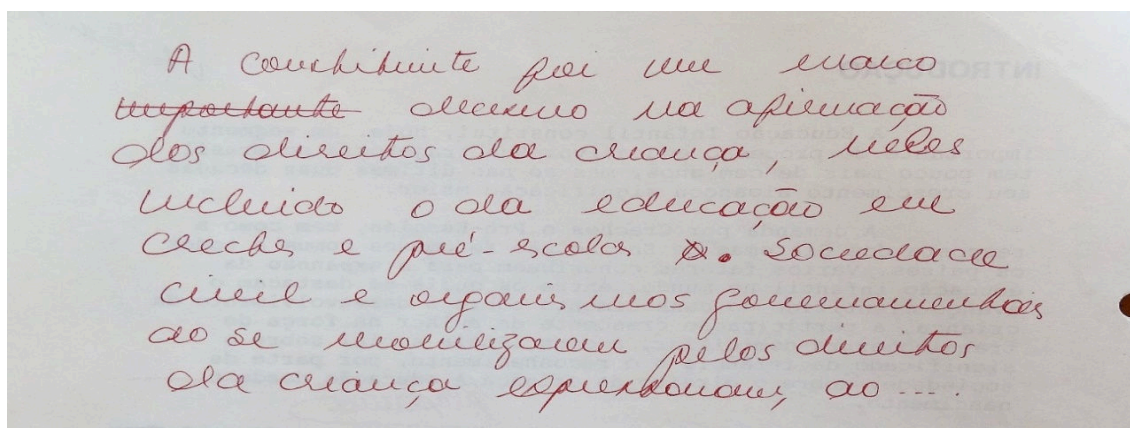 A Constituinte foi um marco
importante decisivo na afirmação
dos direitos da criança, neles
incluido o da educação em
creches e pré-escolas. Sociedade
civil e organismos governamentais
ao se mobilizarem pelos direitos
da criança expressavam, ao ....